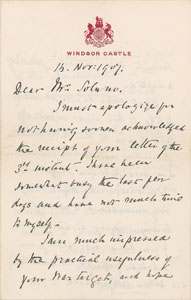 WINDSOR CASTLE
14. Nov: 1907.
Dear Mr. Solano.
I must apologize for
not having sooner acknowledged
the receipt of your letter of the
3rd instant. I have been
somewhat busy the last few
days and have not much time
to myself.
I am much impressed
by the practical usefulness of
your War targets, and hope